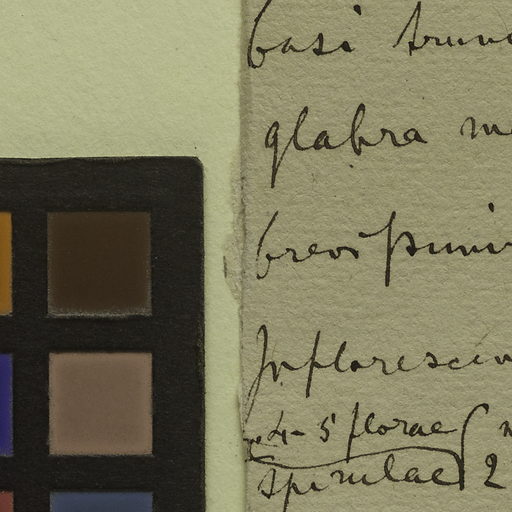 basi trunc
glabra m
brevi
Inflorescen
4-5 florae
spirulae 2